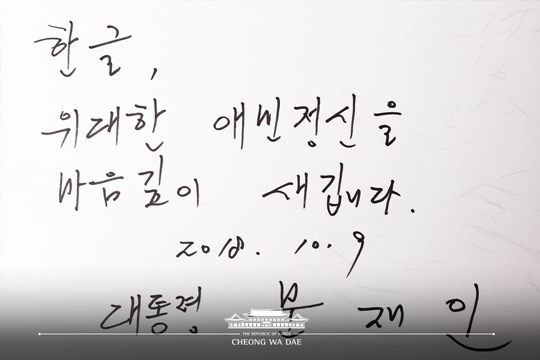 한글,
위대한 애민정신을
마음깊이 새깁니다.
2018. 10. 9
대통령 문재인
THE REPUBLIC OF KOREA
CHEONG WA DAE